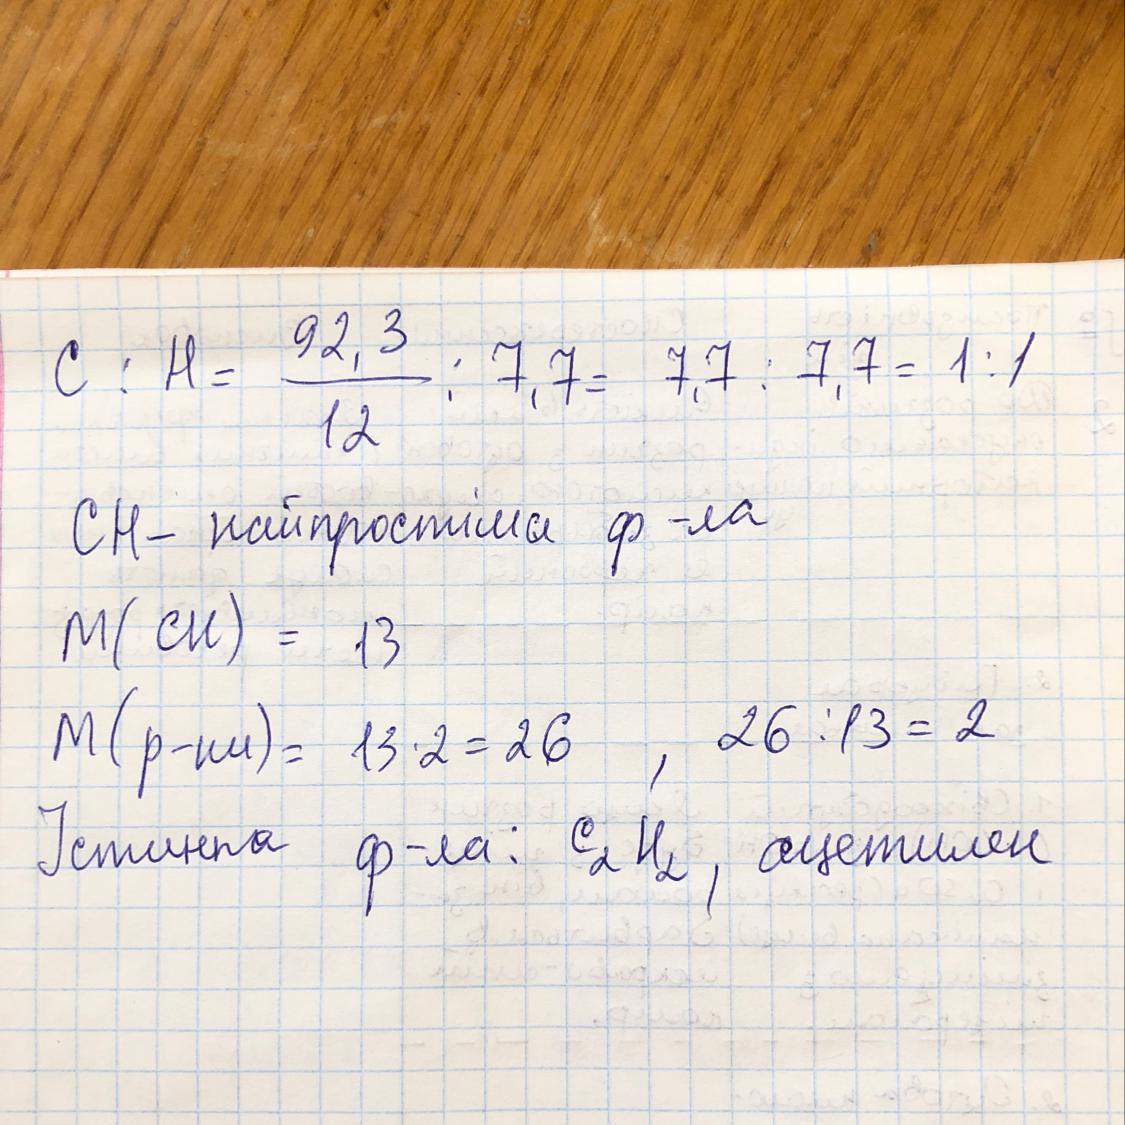 C : H = 92,3/12 : 7,7 = 7,7 : 7,7 = 1:1
CH – найпростіша ф-ла
M(CH) = 13
M(р-ни) = 13·2 = 26 , 26:13 = 2
Істинна ф-ла: C₂H₂, ацетилен